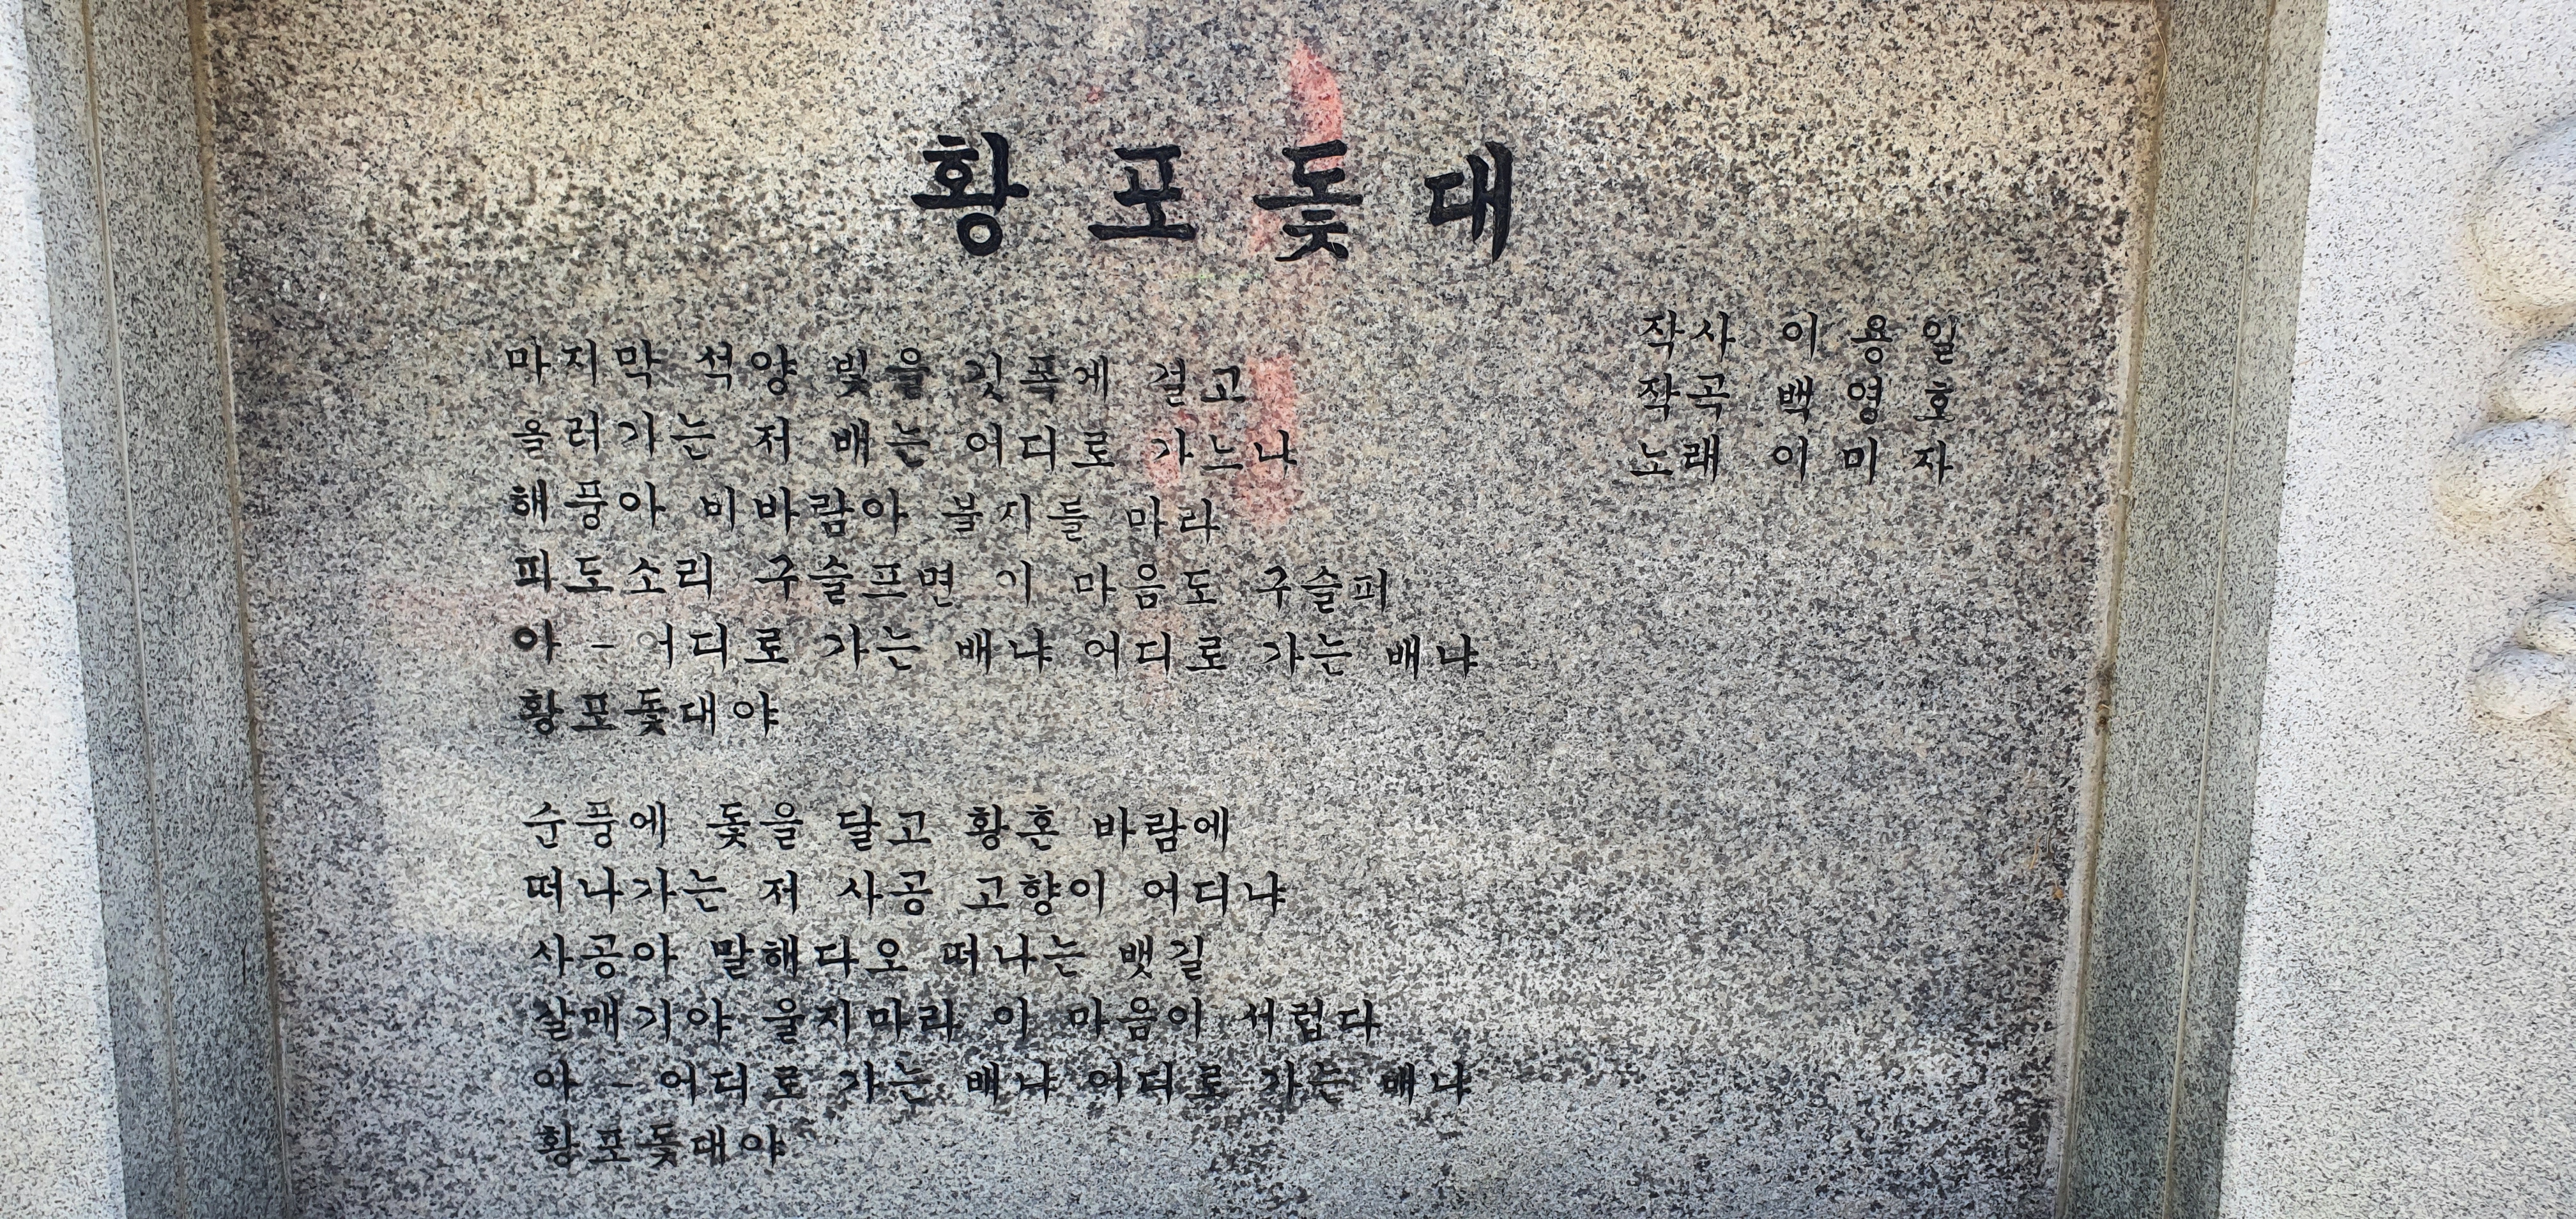 황포돛대
작사 이용일
작곡 백영호
노래 이미자
마지막 석양 빛을 깃폭에 걸고
흘러가는 저 배는 어디로 가느냐
해풍아 비바람아 불지를 마라
파도소리 구슬프면 이 마음도 구슬퍼
아 - 어디로 가는 배냐 어디로 가는 배냐
황포돛대야
순풍에 돛을 달고 황혼 바람에
떠나가는 저 사공 고향이 어디냐
사공아 말해다오 떠나는 뱃길
갈매기야 울지마라 이 마음이 서럽다
아 - 어디로 가는 배냐 어디로 가는 배냐
황포돛대야